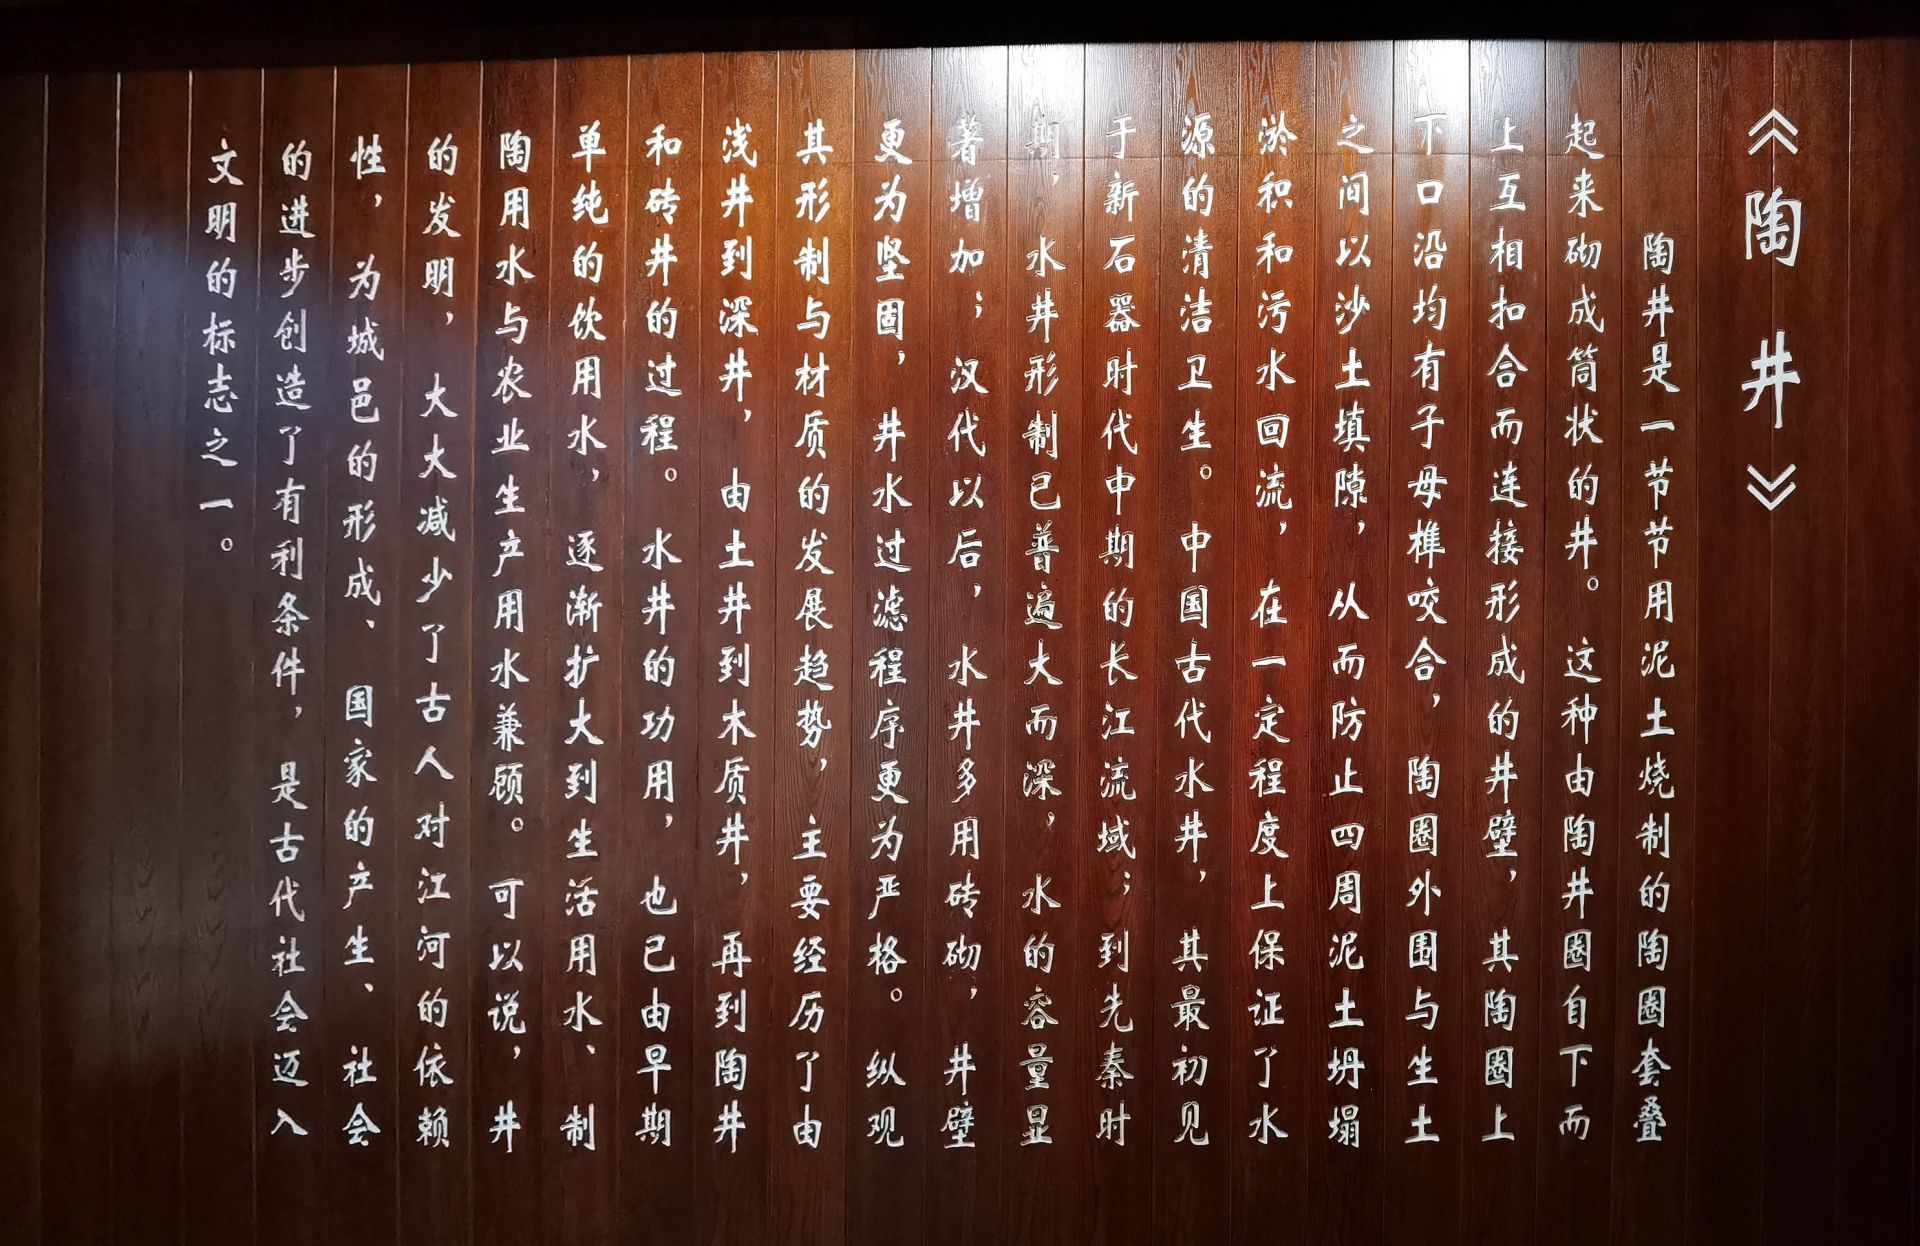 《陶井》
陶井是一节节用泥土烧制的陶圈套叠
起来砌成筒状的井。这种由陶井圈自下而
上互相扣合而连接形成的井壁，其陶圈上
下口沿均有子母榫咬合，陶圈外围与生土
之间以沙土填隙，从而防止四周泥土坍塌
淤积和污水回流，在一定程度上保证了水
源的清洁卫生。中国古代水井，其最初见
于新石器时代中期的长江流域；到先秦时
期，水井形制已普遍大而深，水的容量显
著增加；汉代以后，水井多用砖砌，井壁
更为坚固，井水过滤程序更为严格。纵观
其形制与材质的发展趋势，主要经历了由
浅井到深井，由土井到木质井，再到陶井
和砖井的过程。水井的功用，也已由早期
单纯的饮用水，逐渐扩大到生活用水、制
陶用水与农业生产用水兼顾。可以说，井
的发明，大大减少了古人对江河的依赖
性，为城邑的形成、国家的产生、社会
的进步创造了有利条件，是古代社会迈入
文明的标志之一。